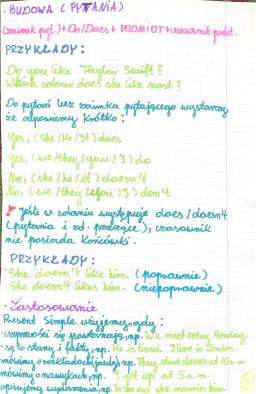 · BUDOWA (PYTANIA)
(zaimek pyt.) + Do/Does + PODMIOT + czasownik podst.
PRZYKŁADY:
Do you like Taylor Swift?
Which colour does she like most?
Do pytań bez zaimka pytającego wystarczy
że odpowiemy krótko:
Yes, (she/He/It) does
Yes, (we/they/you/I) do
No, (she/he/it) doesn't
No, (we/they/you/I) don't
! Jeśli w zdaniu występuje does/doesn't
(pytania i zd. przeczące), czasownik
nie posiada końcówki.
PRZYKŁADY:
She doesn't like him. (poprawnie)
She doesn't likes him. (niepoprawnie)
· Zastosowanie
Present Simple użyjemy, gdy:
· czynności się powtarzają, np. We meet every Monday.
· są to stany i fakty, np. He is tired. I live in London.
· mówimy o rozkładach jazdy, np. They start classes at 10 a.m
mówimy o nawykach, np. I get up at 5 a.m.
opisujemy wydarzenia, np. In the end she marries him.